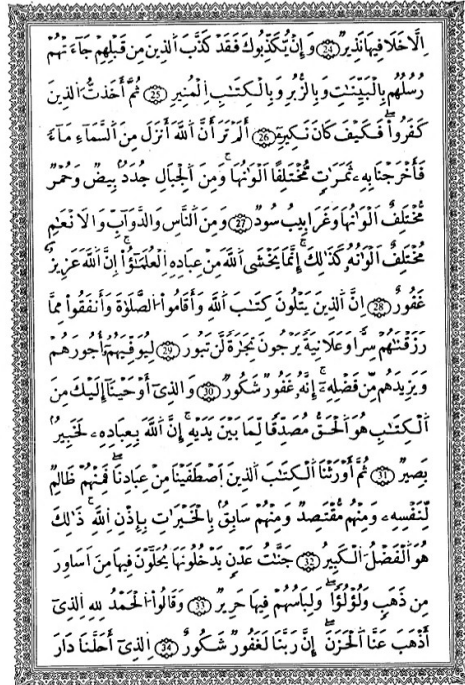 اِلَّا خَلَا فِيهَا نَذِيرٌ ﴿24﴾ وَإِنْ يُكَذِّبُوكَ فَقَدْ كَذَّبَ الَّذِينَ مِن قَبْلِهِمْ جَآءَتْهُمْ
رُسُلُهُم بِالْبَيِّنَٰتِ وَبِالزُّبُرِ وَبِالْكِتَٰبِ الْمُنِيرِ ﴿25﴾ ثُمَّ أَخَذتُّ الَّذِينَ
كَفَرُوا۟ فَكَيْفَ كَانَ نَكِيرِ ﴿26﴾ أَلَمْ تَرَ أَنَّ اللَّهَ أَنْزَلَ مِنَ السَّمَآءِ مَآءً
فَأَخْرَجْنَا بِهِۦ ثَمَرَٰتٍ مُّخْتَلِفًا اَلْوَٰنُهَا وَمِنَ الْجِبَالِ جُدَدٌۢ بِيضٌ وَحُمْرٌ
مُّخْتَلِفٌ اَلْوَٰنُهَا وَغَرَابِيبُ سُودٌ ﴿27﴾ وَمِنَ النَّاسِ وَالدَّوَآبِّ وَالْاَنْعَٰمِ
مُخْتَلِفٌ اَلْوَٰنُهُۥ كَذَٰلِكَ إِنَّمَا يَخْشَى اللَّهَ مِنْ عِبَادِهِ الْعُلَمَٰٓؤُا۟ إِنَّ اللَّهَ عَزِيزٌ
غَفُورٌ ﴿28﴾ اِنَّ الَّذِينَ يَتْلُونَ كِتَٰبَ اللَّهِ وَأَقَامُوا۟ الصَّلَوٰةَ وَأَنفَقُوا۟ مِمَّا
رَزَقْنَٰهُمْ سِرًّا وَعَلَانِيَةً يَرْجُونَ تِجَٰرَةً لَّن تَبُورَ ﴿29﴾ لِيُوَفِّيَهُمْ أُجُورَهُمْ
وَيَزِيدَهُم مِّن فَضْلِهِۦٓ إِنَّهُۥ غَفُورٌ شَكُورٌ ﴿30﴾ وَالَّذِىٓ أَوْحَيْنَآ إِلَيْكَ مِنَ
الْكِتَٰبِ هُوَ الْحَقُّ مُصَدِّقًا لِّمَا بَيْنَ يَدَيْهِ إِنَّ اللَّهَ بِعِبَادِهِۦ لَخَبِيرٌۢ
بَصِيرٌ ﴿31﴾ ثُمَّ أَوْرَثْنَا الْكِتَٰبَ الَّذِينَ اصْطَفَيْنَا مِنْ عِبَادِنَا فَمِنْهُمْ ظَالِمٌ
لِّنَفْسِهِۦ وَمِنْهُم مُّقْتَصِدٌ وَمِنْهُمْ سَابِقٌۢ بِالْخَيْرَٰتِ بِإِذْنِ اللَّهِ ذَٰلِكَ
هُوَ الْفَضْلُ الْكَبِيرُ ﴿32﴾ جَنَّٰتُ عَدْنٍ يَدْخُلُونَهَا يُحَلَّوْنَ فِيهَا مِنْ أَسَاوِرَ
مِن ذَهَبٍ وَلُؤْلُؤًا وَلِبَاسُهُمْ فِيهَا حَرِيرٌ ﴿33﴾ وَقَالُوا۟ الْحَمْدُ لِلَّهِ الَّذِىٓ
أَذْهَبَ عَنَّا الْحَزَنَ إِنَّ رَبَّنَا لَغَفُورٌ شَكُورٌ ﴿34﴾ الَّذِىٓ أَحَلَّنَا دَارَ